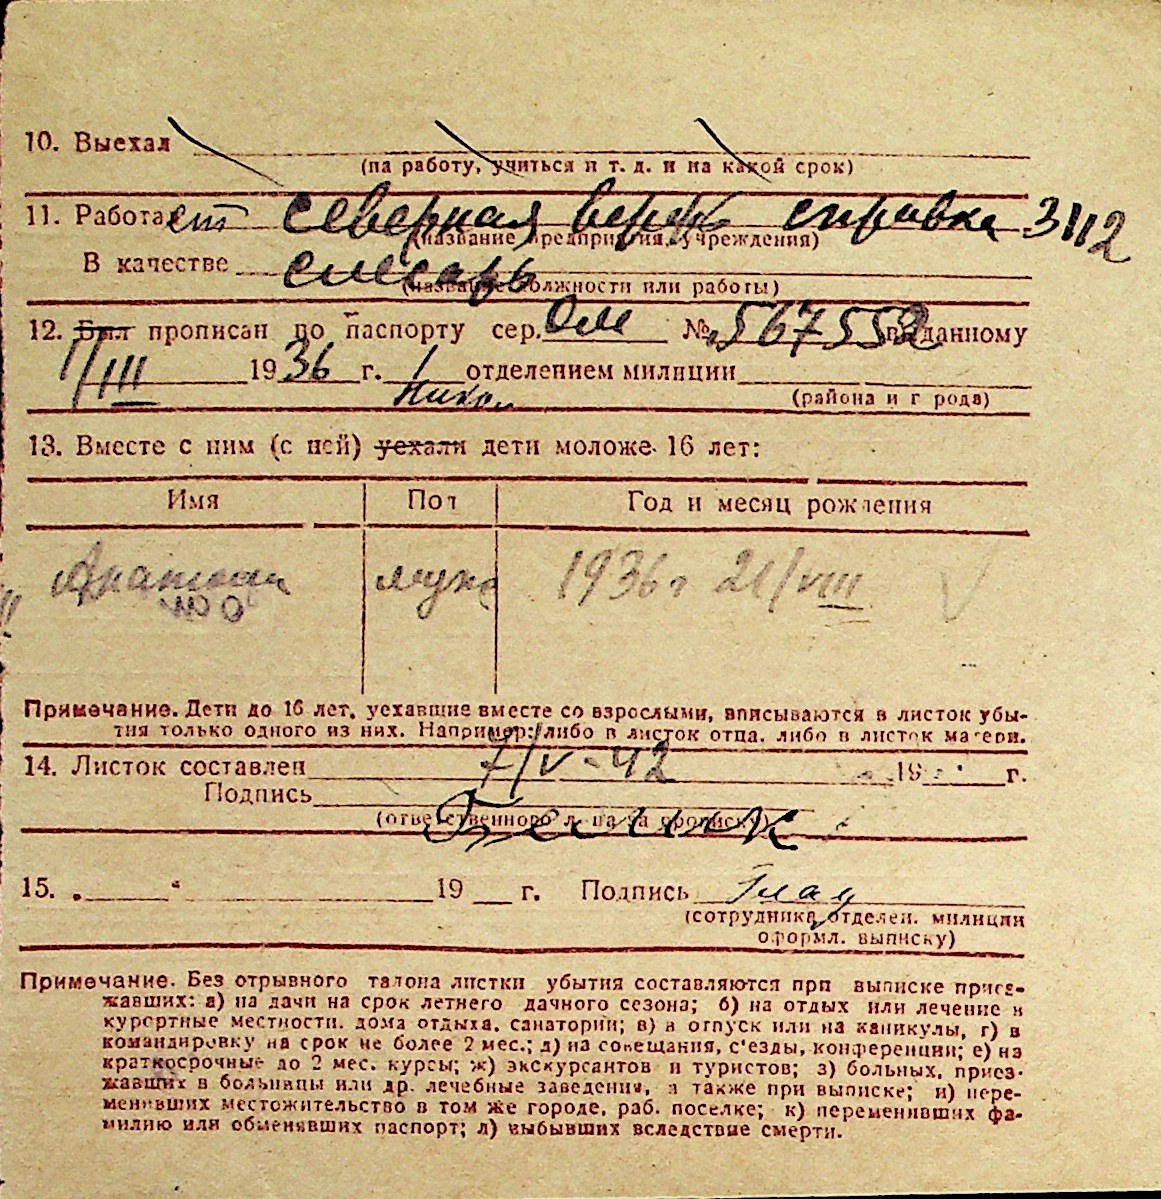 10. Выехал
(на работу, учиться и т. д. и на какой срок)
11. Работает северная верфь справка 3112
(название предприятия, учреждения)
В качестве слесарь
(название должности или работы)
12. Был прописан по паспорту сер. № 567552 выданному
1/III 1936 г. 1 отделением милиции
(района и города)
13. Вместе с ним (с ней) уехали дети моложе 16 лет:
Имя Пол Год и месяц рождения
Анатолий муж 1936 г 21/VIII
Примечание. Дети до 16 лет, уехавшие вместе со взрослыми, вписываются в листок убы-
тия только одного из них. Например: либо в листок отца, либо в листок матери.
14. Листок составлен 7/V-42 19 г.
Подпись
(ответственного лица за прописку)
15. „ “ 19 г. Подпись
(сотрудника отделен. милиции
оформл. выписку)
Примечание. Без отрывного талона листки убытия составляются при выписке приез-
жавших: а) на дачи на срок летнего дачного сезона; б) на отдых или лечение в
курортные местности, дома отдыха, санатории; в) в отпуск или на каникулы, г) в
командировку на срок не более 2 мес.; д) на совещания, с'езды, конференции; е) на
краткосрочные до 2 мес. курсы; ж) экскурсантов и туристов; з) больных, приез-
жавших в больницы или др. лечебные заведения, а также при выписке; и) пере-
менивших местожительство в том же городе, раб. поселке; к) переменивших фа-
милию или обменявших паспорт; л) выбывших вследствие смерти.